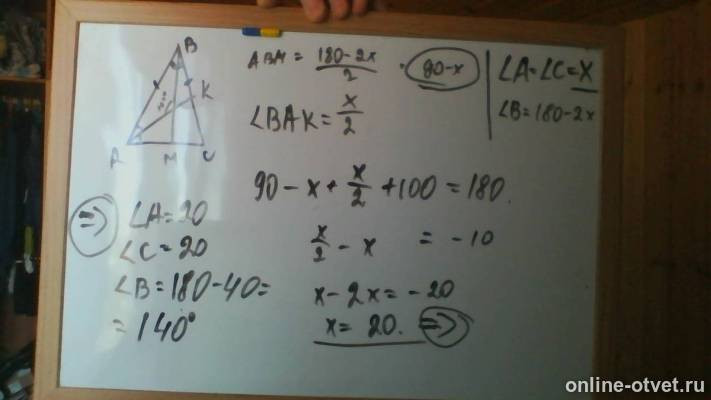 B
K
A
M
C
100
ABM = 180-2x / 2 = 90-x
∠BAK = x/2
∠A=∠C=x
∠B=180-2x
90-x+x/2+100=180.
x/2-x = -10
x-2x=-20
x=20. =>
=> ∠A=20
∠C=20
∠B=180-40=
=140°
online-otvet.ru